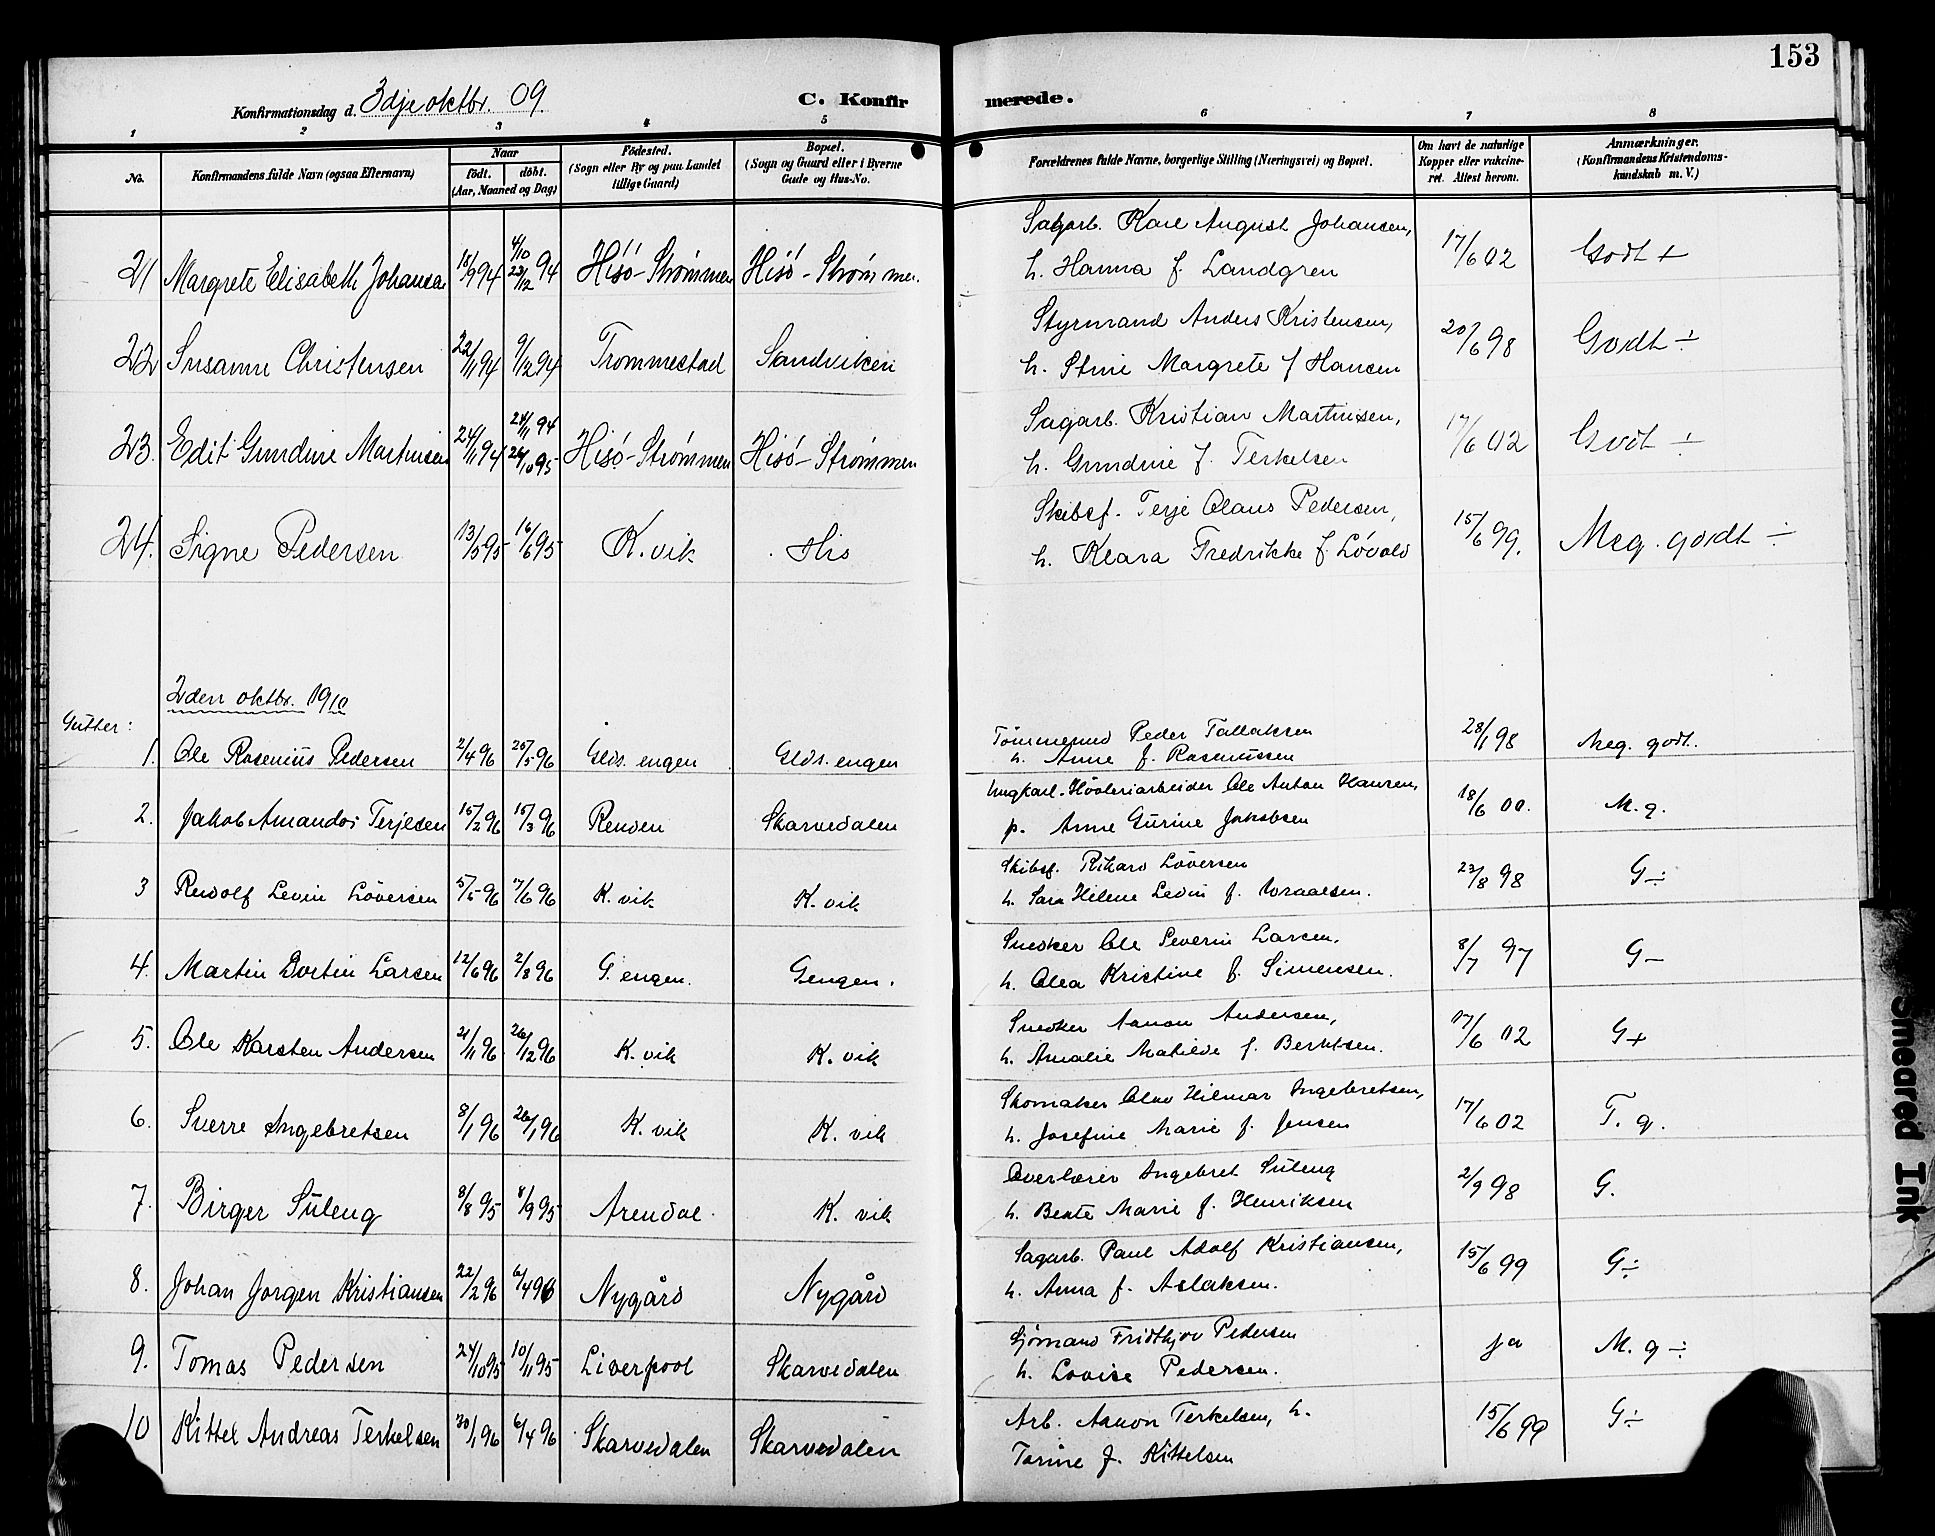 153
Konfirmationsdag d. 3dje oktbr. 09.
C. Konfirmerede.
1 2 3 4 5 6 7 8
No.
Konfirmandens fulde Navn (ogsaa Efternavn)
Naar
födt. döbt.
(Aar, Maaned og Dag)
Födested.
(Sogn eller By og paa Landet
tillige Gaard)
Bopæl.
(Sogn og Gaard eller i Byerne
Gade og Hus-No.
Forældrenes fulde Navne, borgerlige Stilling (Næringsvei) og Bopæl.
Om havt de naturlige
Kopper eller vakcine-
ret. Attest herom.
Anmærkninger.
(Konfirmandens Kristendoms-
kundskab m. V.)
21 Margrete Elisabeth Johansen 18/9 94 4/10 23/12 94 Hisö-Strømmen Hisö-Strømmen. Sagarb. Karl August Johansen, 17/6 02 Godt +
h. Hanna f. Landgren
22 Susanne Christensen 22/11 94 9/12 94 Trommestad Sandviken Styrmand Anders Kristensen, 20/6 98 Godt ÷
h. Stine Margrete f Hansen
23. Edit Gundine Martinsen 24/11 94 24/11 94 Hisö-Strømmen Hisö-Strømmen Sagarb. Kristian Martinsen, 17/6 02 Godt ÷
h. Gundine f. Terkelsen
24. Signe Pedersen 13/5 95 16/6 95 K.vik His Skibsf. Terje Olaus Pedersen, 15/6 99. Meg. godt ÷
h. Klara Fredrikke f. Lövold
2den oktbr. 1910
Gutter:
1. Ole Rosenius Pedersen 2/4 96 25/5 96 Glds. engen Glds. engen Tömmermd Peder Tallaksen 28/1 98 Meg. godt.
h. Anne f. Rasmussen
2. Jakob Amandus Terjesen 15/2 96 15/3 96 Revden Skarvedalen Ungkarl-Høvleriarbeider Ole Anton Hansen, 18/6 00. M. g.
p. Anne Gurine Jakobsen
3 Rudolf Levin Löversen 5/5 96 7/6 96 K. vik K. vik Skibsf. Rikard Löversen 23/8 98 G ÷
h. Sara Helene Levin f. Wraalsen.
4. Martin Bortin Larsen 12/6 96 2/8 96 G. engen. G engen. Snedker Ole Severin Larsen, 8/7 97 G -
h. Olea Kristine f. Simensen.
5. Ole Karsten Andersen 21/11 96 26/12 96 K. vik K. vik Snedker Aanon Andersen, 17/6 02 G +
h. Amalie Matilde f. Berntsen.
6. Sverre Ingebretsen 8/1 96 26/1 96 K. vik K. vik Skomaker Olav Hilmar Ingebretsen, 17/6 02 T. g.
h. Josefine Marie f. Jensen
7. Birger Süleng 8/8 95 8/9 95 Arendal K. vik Overlærer Ingebret Süleng 2/9 98 G.
h. Beate Marie f. Henriksen
8. Johan Jorgen Kristiansen 22/2 96 6/4 96 Nygård Nygård Sagarb. Paul Adolf Kristiansen, 15/6 99 G ÷
h. Anna f. Aslaksen.
9. Tomas Pedersen 24/10 95 10/11 95 Liverpool Skarvedalen Sjømand Fridthjov Pedersen ja M. g ÷
h. Lovise Pedersen.
10 Kittel Andreas Terkelsen 30/1 96 6/4 96 Skarvedalen Skarvedalen Arb. Aanon Terkelsen, h. 15/6 99 G ÷
Torine f. Kittelsen
Smeared Ink